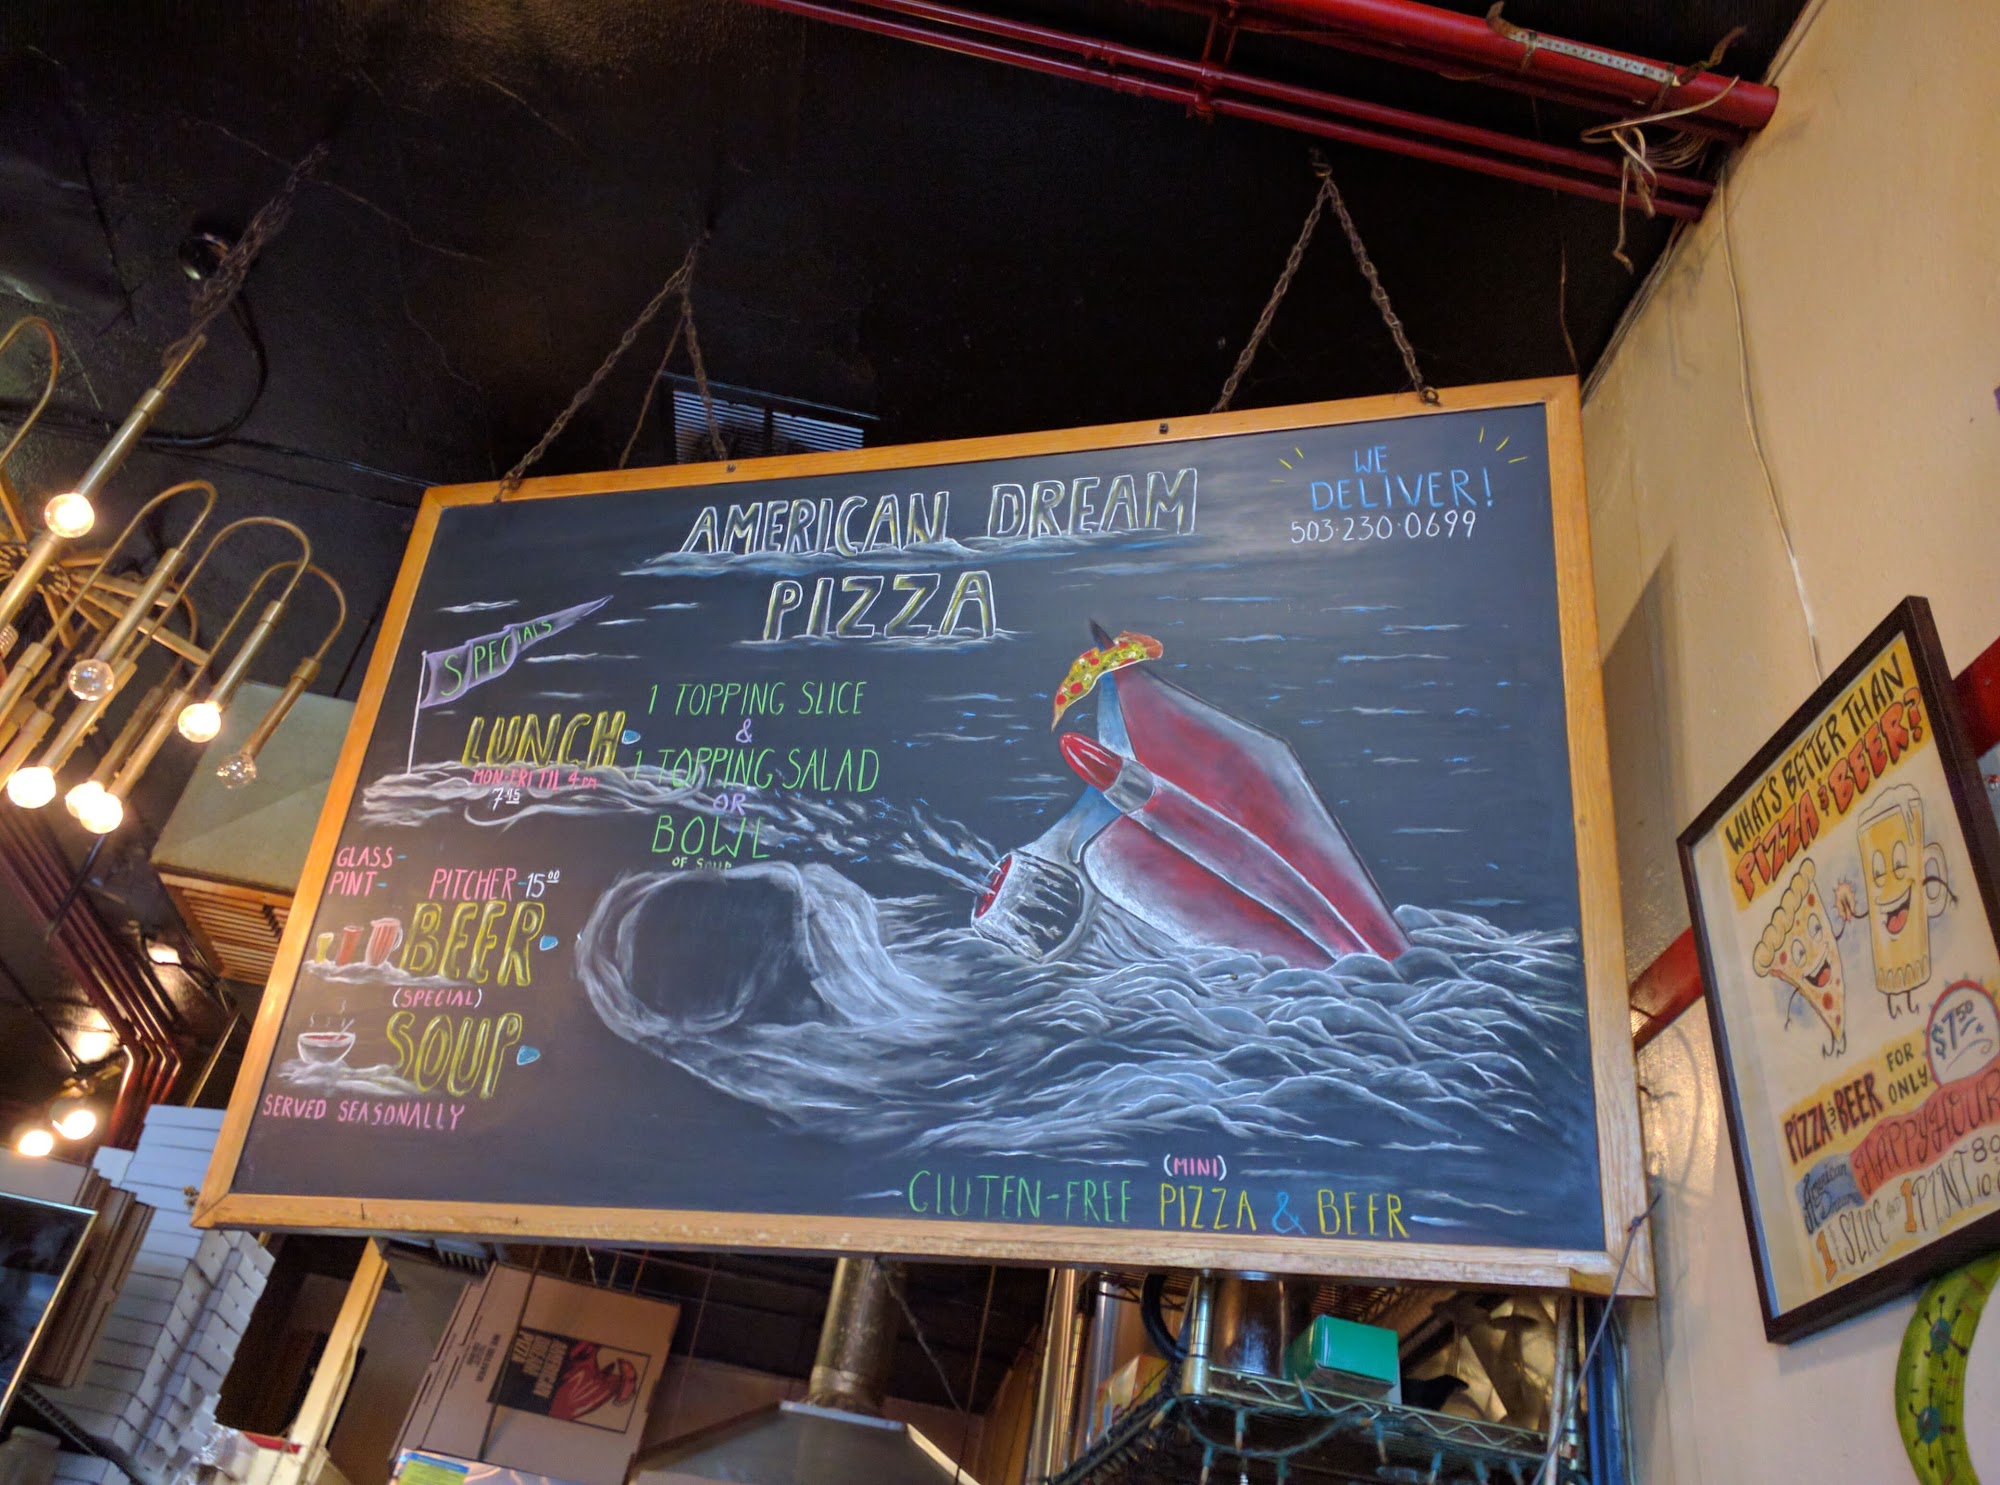 AMERICAN DREAM
PIZZA
WE
DELIVER!
503·230·0699
SPECIALS
LUNCH
MON-FRI TIL 4 PM
7.95
1 TOPPING SLICE
&
1 TOPPING SALAD
OR
BOWL
OF SOUP
GLASS-
PINT-
PITCHER-15.00
BEER
(SPECIAL)
SOUP
SERVED SEASONALLY
(MINI)
GLUTEN-FREE PIZZA & BEER
WHAT'S BETTER THAN
PIZZA & BEER?
$7.50
PIZZA & BEER FOR ONLY
American Dream
HAPPY HOUR
1 SLICE AND 1 PINT
AMERICAN
DREAM
PIZZA